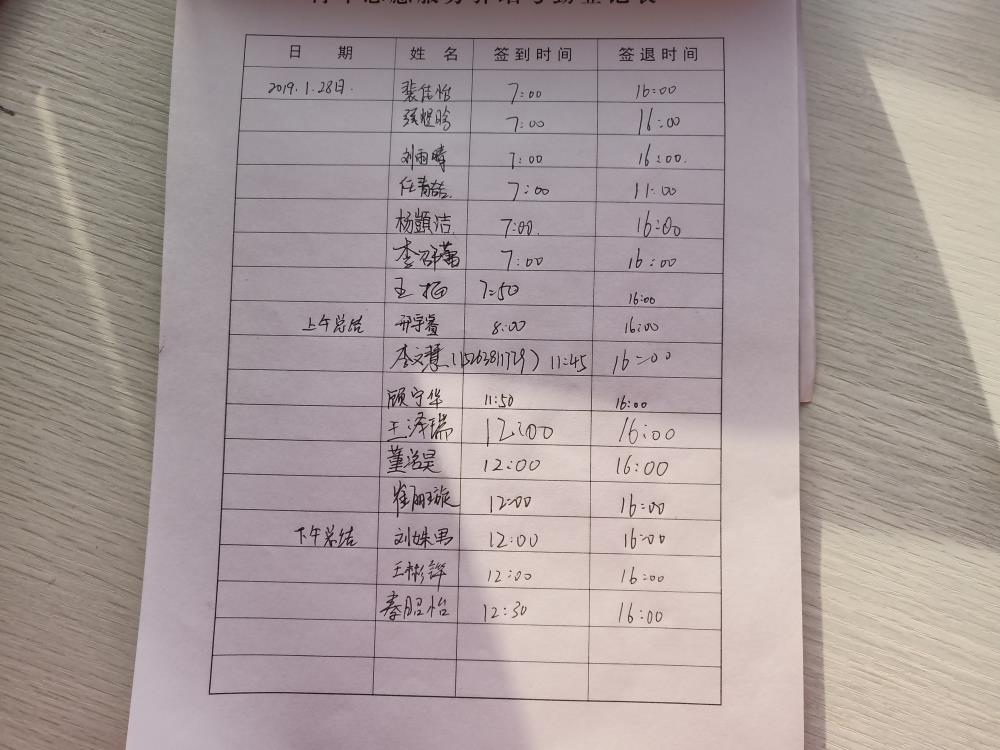 日 期 姓 名 签到时间 签退时间
2019.1.28日. 裴佳怡 7:00 16:00
7:00 16:00
刘雨晴 7:00 16:00.
7:00 11:00
杨顗洁 7:00. 16:00
7:00 16:00
王 7:50 16:00
上午总结 8:00 16:00
李文慧(15263811729) 11:45 16:00
顾宁华 11:50 16:00
王泽瑞 12:00 16:00
董浩昊 12:00 16:00
崔丽璇 12:00 16:00
下午总结 刘姝男 12:00 16:00
王彬铧 12:00 16:00
秦昭怡 12:30 16:00